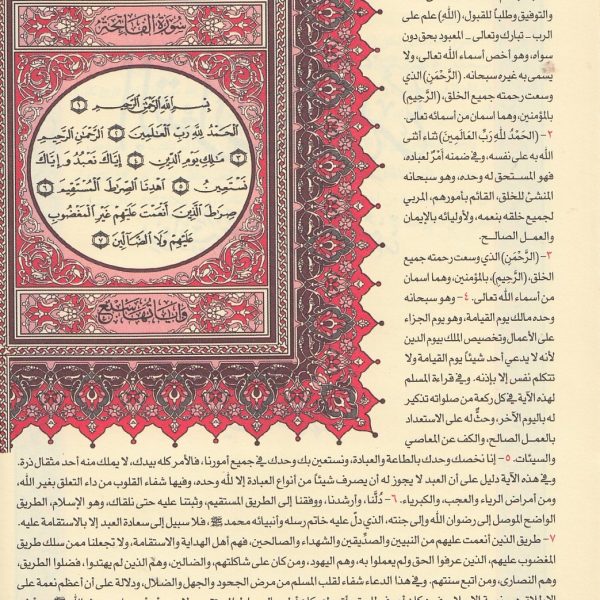 سُورَةُ الفَاتِحَةِ
بِسْمِ اللَّهِ الرَّحْمَٰنِ الرَّحِيمِ ١
الْحَمْدُ لِلَّهِ رَبِّ الْعَالَمِينَ ٢ الرَّحْمَٰنِ الرَّحِيمِ
٣ مَالِكِ يَوْمِ الدِّينِ ٤ إِيَّاكَ نَعْبُدُ وَإِيَّاكَ
نَسْتَعِينُ ٥ اهْدِنَا الصِّرَاطَ الْمُسْتَقِيمَ ٦
صِرَاطَ الَّذِينَ أَنْعَمْتَ عَلَيْهِمْ غَيْرِ الْمَغْضُوبِ
عَلَيْهِمْ وَلَا الضَّالِّينَ ٧
وَآيَاتُهَا سَبْعٌ
والتوفيق وطلباً للقبول، (اللَّهِ) علم على
الرب -تبارك وتعالى- المعبود بحق دون
سواه، وهو أخص أسماء الله تعالى، ولا
يسمى به غيره سبحانه. (الرَّحْمَنِ) الذي
وسعت رحمته جميع الخلق، (الرَّحِيمِ)
بالمؤمنين، وهما اسمان من أسمائه تعالى.
٢- (الحَمْدُ للهِ رَبِّ العَالَمِينَ) ثناء أثنى
الله به على نفسه، وفي ضمنه أمْرٌ لعباده،
فهو المستحق له وحده، وهو سبحانه
المنشئ للخلق، القائم بأمورهم، المربي
لجميع خلقه بنعمه، ولأوليائه بالإيمان
والعمل الصالح.
٣- (الرَّحْمَنِ) الذي وسعت رحمته جميع
الخلق، (الرَّحِيمِ)، بالمؤمنين، وهما اسمان
من أسماء الله تعالى. ٤- وهو سبحانه
وحده مالك يوم القيامة، وهو يوم الجزاء
على الأعمال وتخصيص الملك بيوم الدين
لأنه لا يدعي أحد شيئاً يوم القيامة ولا
تتكلم نفس إلا بإذنه. وفي قراءة المسلم
لهذه الآية في كل ركعة من صلواته تذكير
له باليوم الآخر، وحثٌّ له على الاستعداد
بالعمل الصالح، والكف عن المعاصي
والسيئات. ٥- إنا نخصك وحدك بالطاعة والعبادة، ونستعين بك وحدك في جميع أمورنا، فالأمر كله بيدك، لا يملك منه أحد مثقال ذرة.
وفي هذه الآية دليل على أن العبد لا يجوز له أن يصرف شيئاً من أنواع العبادة إلا لله وحده، وفيها شفاء القلوب من داء التعلق بغير الله،
ومن أمراض الرياء والعجب، والكبرياء. ٦- دُلَّنا، وأرشدنا، ووفقنا إلى الطريق المستقيم، وثبتنا عليه حتى نلقاك، وهو الإسلام، الطريق
الواضح الموصل إلى رضوان الله وإلى جنته، الذي دلّ عليه خاتم رسله وأنبيائه محمد ﷺ، فلا سبيل إلى سعادة العبد إلا بالاستقامة عليه.
٧- طريق الذين أنعمت عليهم من النبيين والصدِّيقين والشهداء والصالحين، فهم أهل الهداية والاستقامة، ولا تجعلنا ممن سلك طريق
المغضوب عليهم، الذين عرفوا الحق ولم يعملوا به، وهم اليهود، ومن كان على شاكلتهم، والضالين، وهم الذين لم يهتدوا، فضلوا الطريق،
وهم النصارى، ومن اتبع سنتهم. وفي هذا الدعاء شفاء لقلب المسلم من مرض الجحود والجهل والضلال، ودلالة على أن أعظم نعمة على